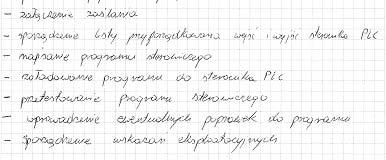 - załączenie zasilania
- sporządzenie listy przyporządkowania wejść i wyjść sterownika PLC
- napisanie programu sterowniczego
- załadowanie programu do sterownika PLC
- przetestowanie programu sterowniczego
- wprowadzenie ewentualnych poprawek do programu
- sporządzenie wskazań eksploatacyjnych